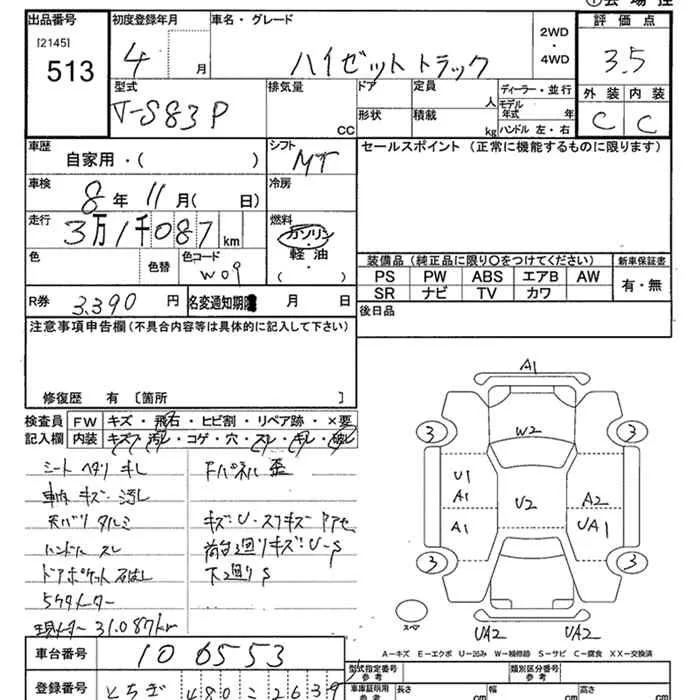 ①会場控
出品番号 [2145] 513
初度登録年月 4 月
車名・グレード ハイゼットトラック
2WD・4WD
評価点 3.5
型式 V-S83P
排気量 CC
ドア
形状
定員 人
積載 kg
ディーラー・並行
モデル年式 年
ハンドル 左・右
外装 C
内装 C
車歴 自家用・( )
シフト MT
セールスポイント (正常に機能するものに限ります)
車検 8年 11月( 日)
冷房
走行 3万1千087km
燃料 ガソリン・軽油・( )
色
色替
色コード W09
装備品 (純正品に限り○をつけてください)
新車保証書
PS PW ABS エアB AW
有・無
SR ナビ TV カワ
R券 3,390 円
名変通知期限 月 日
後日品
注意事項申告欄 (不具合内容等は具体的に記入して下さい)
修復歴 有 [箇所 ]
検査員記入欄
FW キズ・飛石・ヒビ割・リペア跡・×要
内装 キズ・汚れ・コゲ・穴・スレ・キレ・破れ
シート ヘタリ キレ
車内 キズ・汚れ
天バリ タルミ
ハンドル スレ
ドアポケット
5ケタメーター
現メーター 31,087km
Fパネル 歪
キズ:U・スリキズ
キズ:U-S
下廻りS
A1
3
3
W2
U1
A1
U2
A2
A1
UA1
3
3
スペア
UA2
UA2
A-キズ E-エクボ U-凹み W-補修跡 S-サビ C-腐食 XX-交換済
車台番号 106553
型式指定番号 参考
類別区分番号 参考
登録番号 とちぎ 480 こ 2639
車庫証明用参考
長さ cm
幅 cm
高さ cm